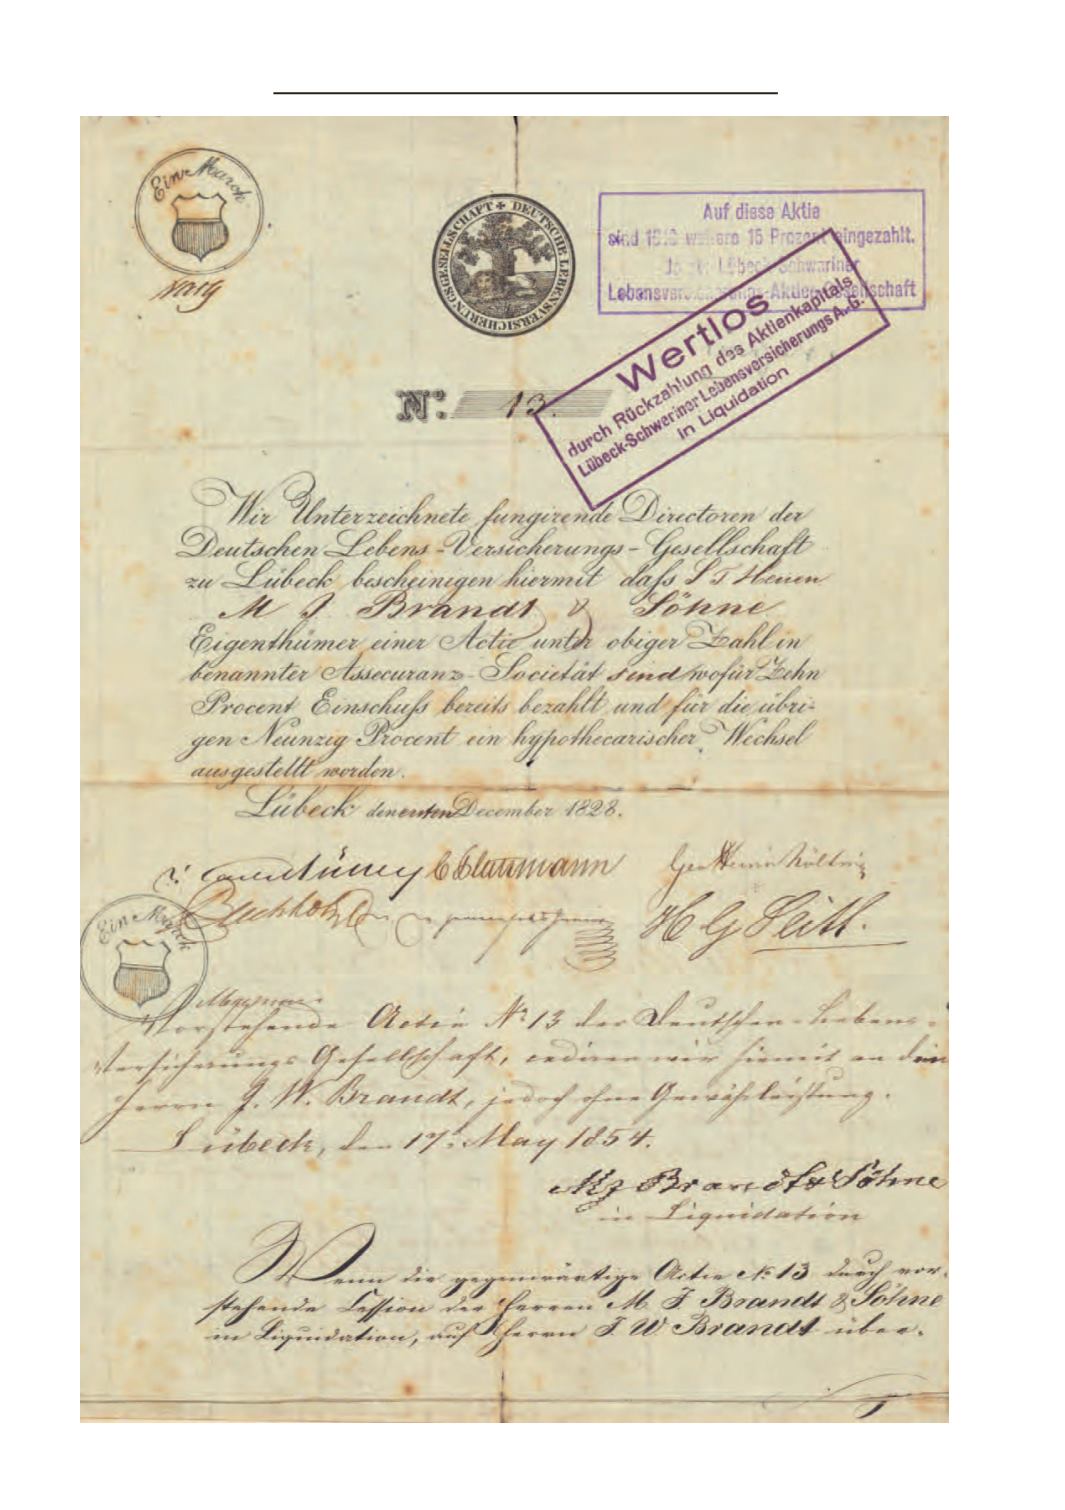 Ein Marck
DEUTSCHE LEBENSVERSICHERUNGSGESELLSCHAFT
Auf diese Aktie
sind weitere 15 Prozent eingezahlt.
Lübeck-Schweriner
Lebensversicherungs-Aktiengesellschaft
Wertlos
durch Rückzahlung des Aktienkapitals
Lübeck-Schweriner Lebensversicherungs A.-G.
in Liquidation
No. 13.
Wir Unterzeichnete fungirende Directoren der
Deutschen Lebens-Versicherungs-Gesellschaft
zu Lübeck bescheinigen hiermit dass S T Herren
M J Brandt & Söhne
Eigenthümer einer Actie unter obiger Zahl in
benannter Assecuranz-Societät sind wofür Zehn
Procent Einschuss bereits bezahlt und für die übri-
gen Neunzig Procent ein hypothecarischer Wechsel
ausgestellt worden.
Lübeck den ersten December 1828.
C Plattmann
Buchholz
H G
Ein Marck
Vorstehende Actie No 13 der Deutschen Lebens-
Versicherungs Gesellschaft, cediren wir hiemit an den
Herrn J. W. Brandt, jedoch ohne Gewährleistung.
Lübeck, den 17. May 1854.
M J Brandt & Söhne
in Liquidation
Wenn die gegenwärtige Actie No 13 durch vor-
stehende Cession der Herren M J Brandt & Söhne
in Liquidation, auf Herrn J W Brandt über-